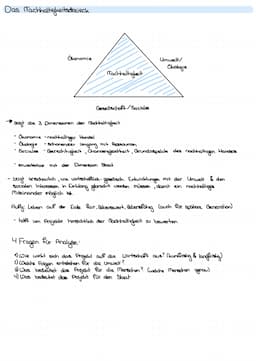 Das Nachhaltigkeitsdreieck
Ökonomie
Umwelt/
Ökologie
Nachhaltigkeit
Gesellschaft / Soziales
→ zeigt die 3 Dimensionen der Nachhaltigkeit
- Ökonomie - nachhaltiger Handel
- Ökologie - schonender Umgang mit Ressourcen
- Soziales - Gerechtigkeit, Chancengleichheit, Grundaspekte des nachhaltigen Handels
- erweiterbar mit der Dimension Staat
- zeigt anschaulich, wie wirtschaftlich-gesellsch. Entwicklungen mit der Umwelt & den
sozialen Interessen in Einklang gebracht werden müssen, damit ein nachhaltiges
Miteinander möglich ist
Leben auf der Erde für lebenswert, (auch für spätere Generation)
- hilft um Projekte hinsichtlich der Nachhaltigkeit zu bewerten
4 Fragen für Analyse:
1) Wie wirkt sich das Projekt auf die Wirtschaft aus? (kurzfristig & langfristig)
2) Welche Folgen entstehen für die Umwelt?
3) Was bedeutet das Projekt für die Menschen? (welche Menschen genau)
4) Was bedeutet das Projekt für den Staat